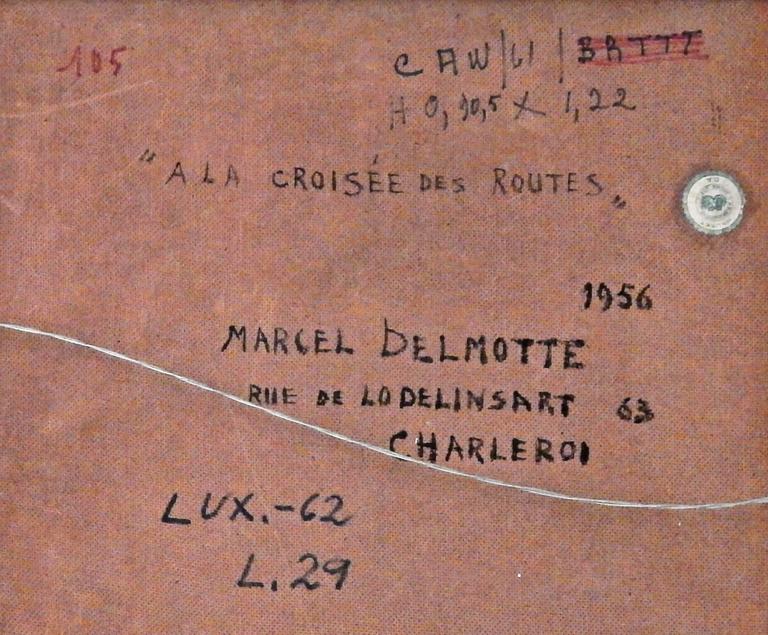 105
CAW/61/BRTTT
H 0,90,5 X 1,22
"A LA CROISÉE DES ROUTES"
1956
MARCEL DELMOTTE
RUE DE LODELINSART 63
CHARLEROI
LUX.-62
L.29